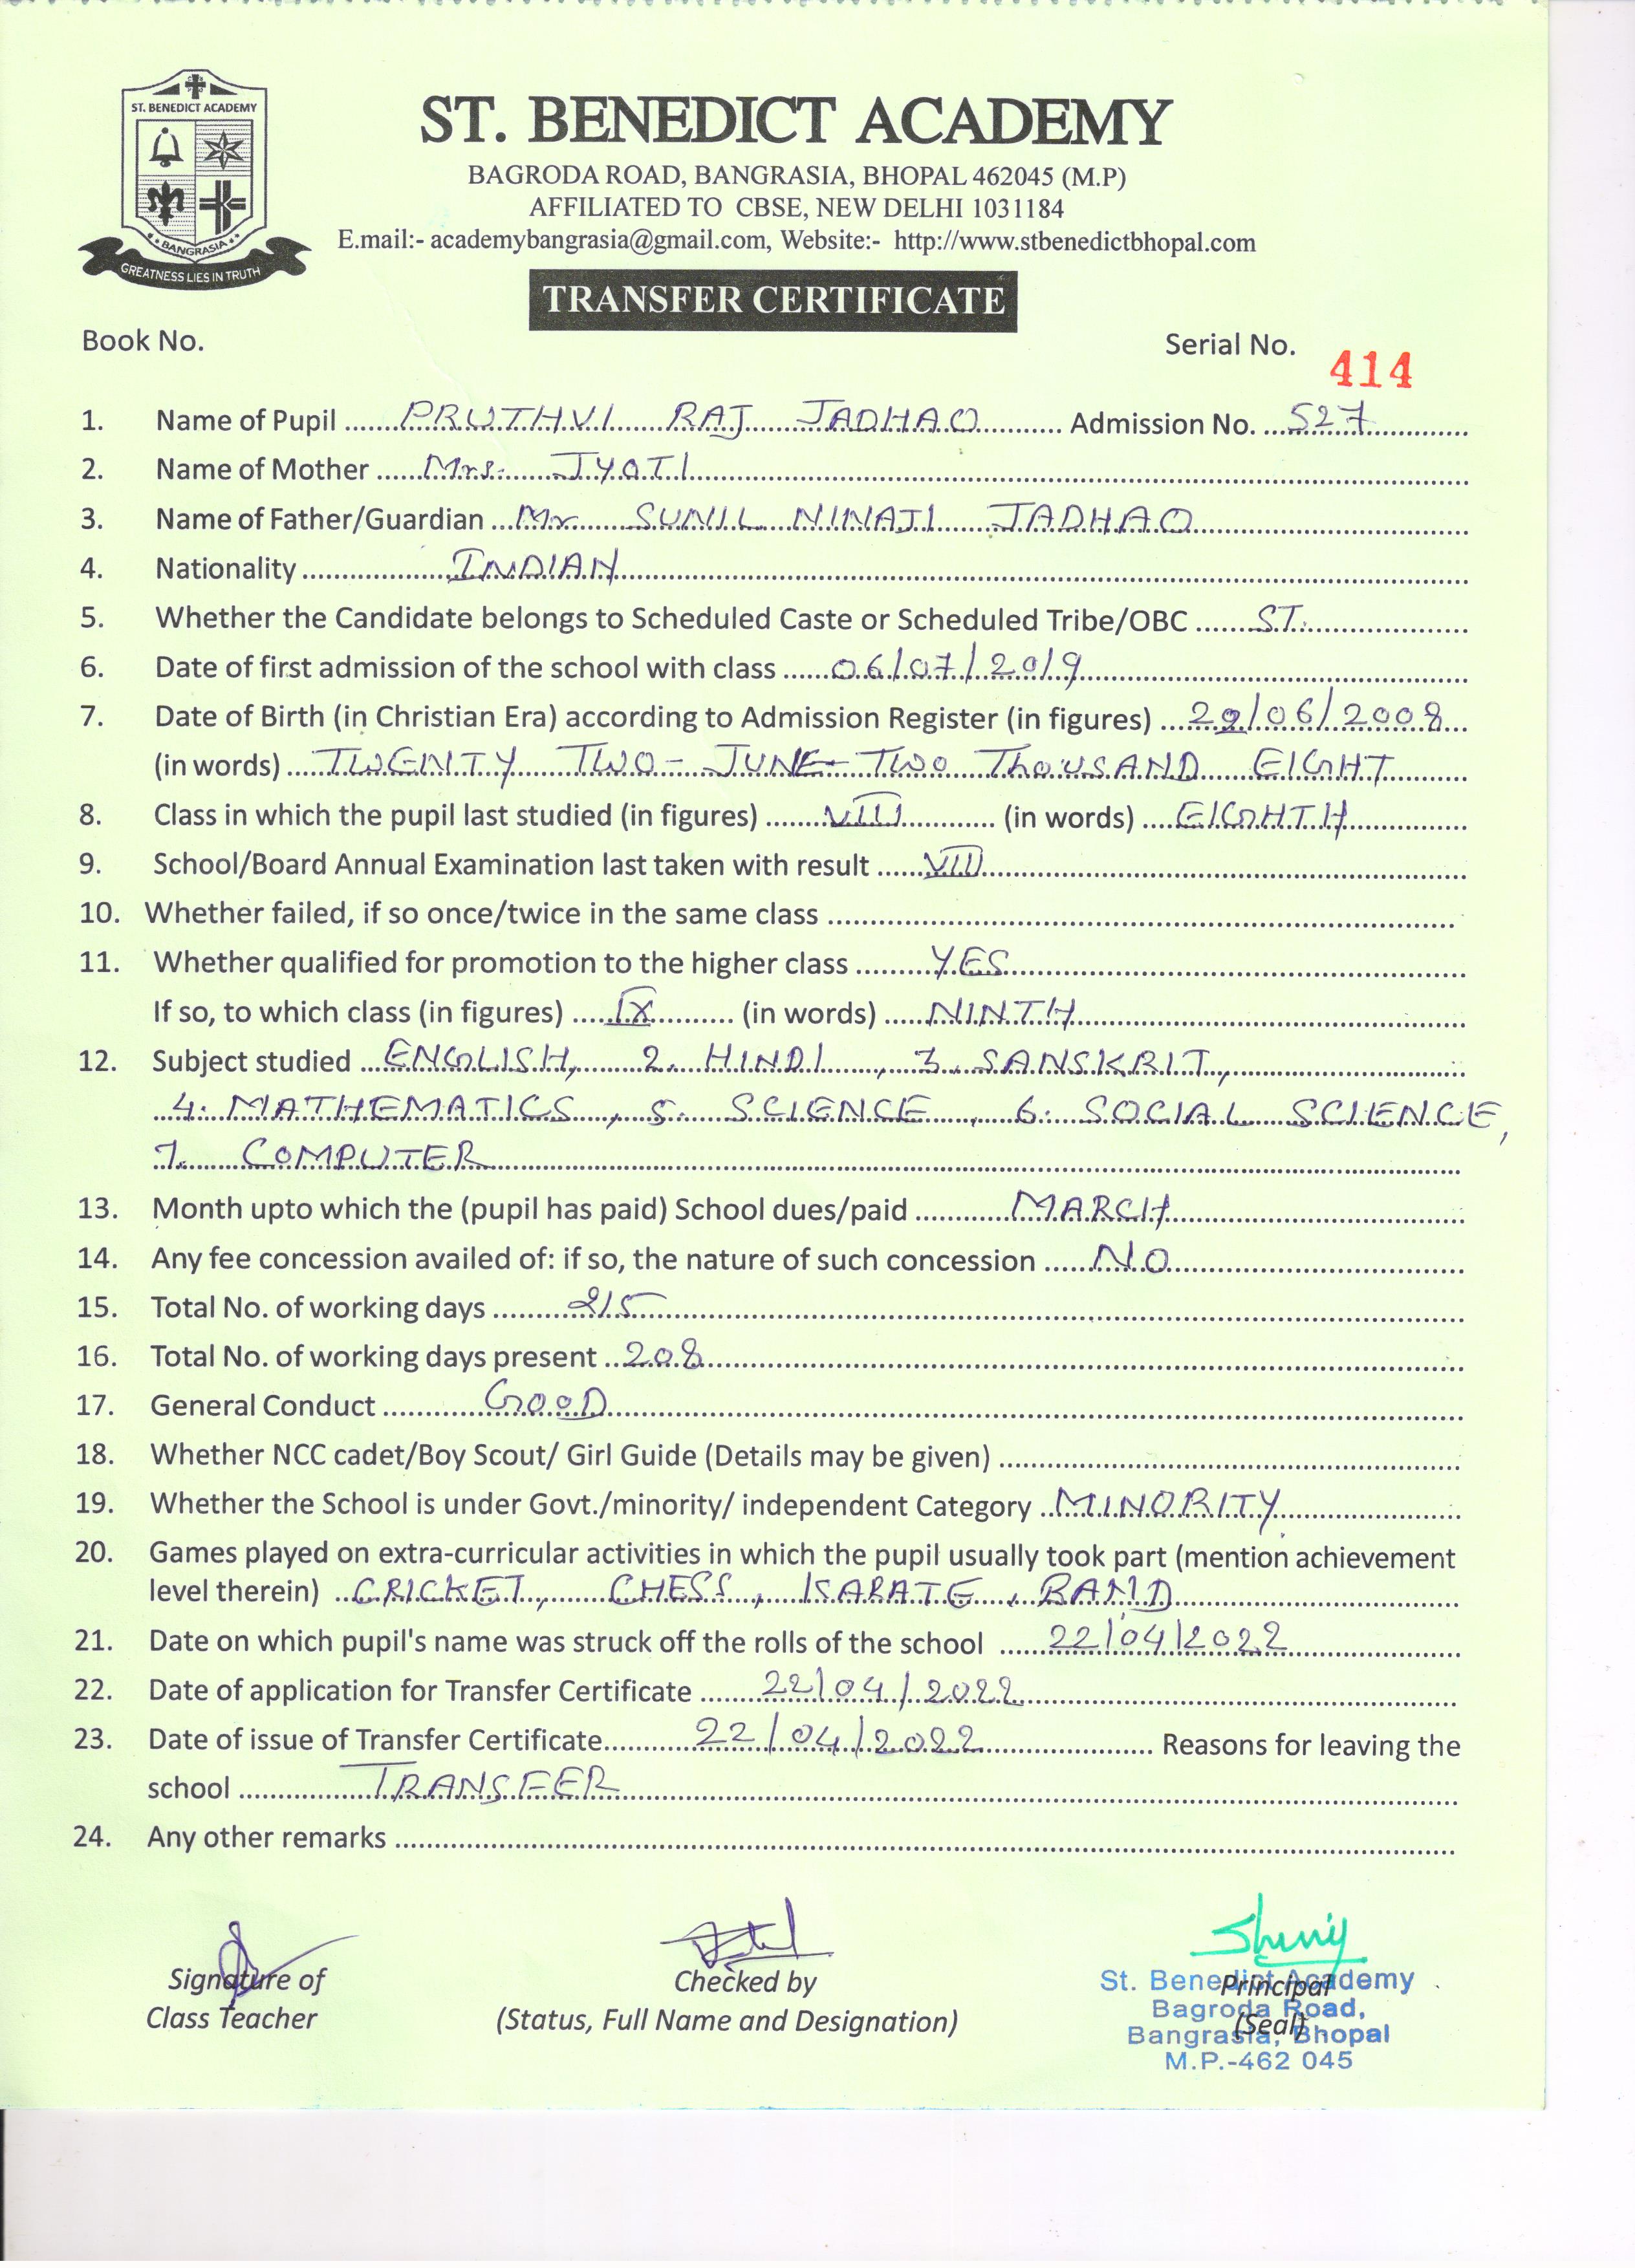 ST. BENEDICT ACADEMY
BANGRASIA
GREATNESS LIES IN TRUTH
ST. BENEDICT ACADEMY
BAGRODA ROAD, BANGRASIA, BHOPAL 462045 (M.P)
AFFILIATED TO CBSE, NEW DELHI 1031184
E.mail:- academybangrasia@gmail.com, Website:- http://www.stbenedictbhopal.com
TRANSFER CERTIFICATE
Book No. Serial No. 414
1. Name of Pupil PRUTHVI RAJ JADHAO Admission No. 527
2. Name of Mother Mrs. JYOTI
3. Name of Father/Guardian Mr. SUNIL NINAJI JADHAO
4. Nationality INDIAN
5. Whether the Candidate belongs to Scheduled Caste or Scheduled Tribe/OBC ST.
6. Date of first admission of the school with class 06/07/2019
7. Date of Birth (in Christian Era) according to Admission Register (in figures) 22/06/2008
(in words) TWENTY TWO - JUNE - TWO THOUSAND EIGHT
8. Class in which the pupil last studied (in figures) VIII (in words) EIGHTH
9. School/Board Annual Examination last taken with result VIII
10. Whether failed, if so once/twice in the same class
11. Whether qualified for promotion to the higher class YES
If so, to which class (in figures) IX (in words) NINTH
12. Subject studied ENGLISH, 2. HINDI, 3. SANSKRIT,
4. MATHEMATICS, 5. SCIENCE, 6. SOCIAL SCIENCE,
7. COMPUTER
13. Month upto which the (pupil has paid) School dues/paid MARCH
14. Any fee concession availed of: if so, the nature of such concession NO
15. Total No. of working days 215
16. Total No. of working days present 208
17. General Conduct GOOD
18. Whether NCC cadet/Boy Scout/ Girl Guide (Details may be given)
19. Whether the School is under Govt./minority/ independent Category MINORITY
20. Games played on extra-curricular activities in which the pupil usually took part (mention achievement
level therein) CRICKET, CHESS, KARATE, BAND
21. Date on which pupil's name was struck off the rolls of the school 22/04/2022
22. Date of application for Transfer Certificate 22/04/2022
23. Date of issue of Transfer Certificate 22/04/2022 Reasons for leaving the
school TRANSFER
24. Any other remarks
Signature of
Class Teacher
Checked by
(Status, Full Name and Designation)
Principal
(Seal)
St. Benedict Academy
Bagroda Road,
Bangrasia, Bhopal
M.P.-462 045